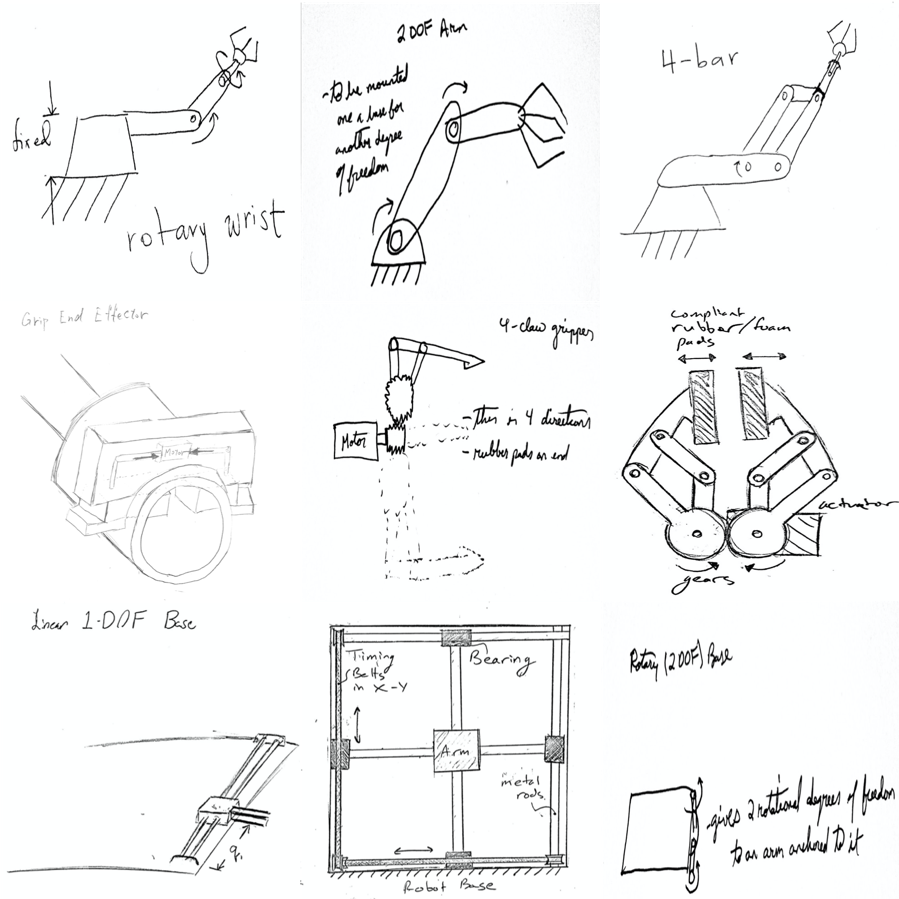 fixed
rotary wrist
2 DOF Arm
-to be mounted
one a base for
another degree
of freedom
4-bar
Grip End Effector
Motor
4-claw gripper
Motor
- this in 4 directions
- rubber pads on end
compliant
rubber/foam
pads
actuator
gears
Linear 1-DOF Base
q₁
Timing
Belts
in X-Y
Bearing
Arm
metal
rods
Robot Base
Rotary (2DOF) Base
-gives 2 rotational degrees of freedom
to an arm anchored to it